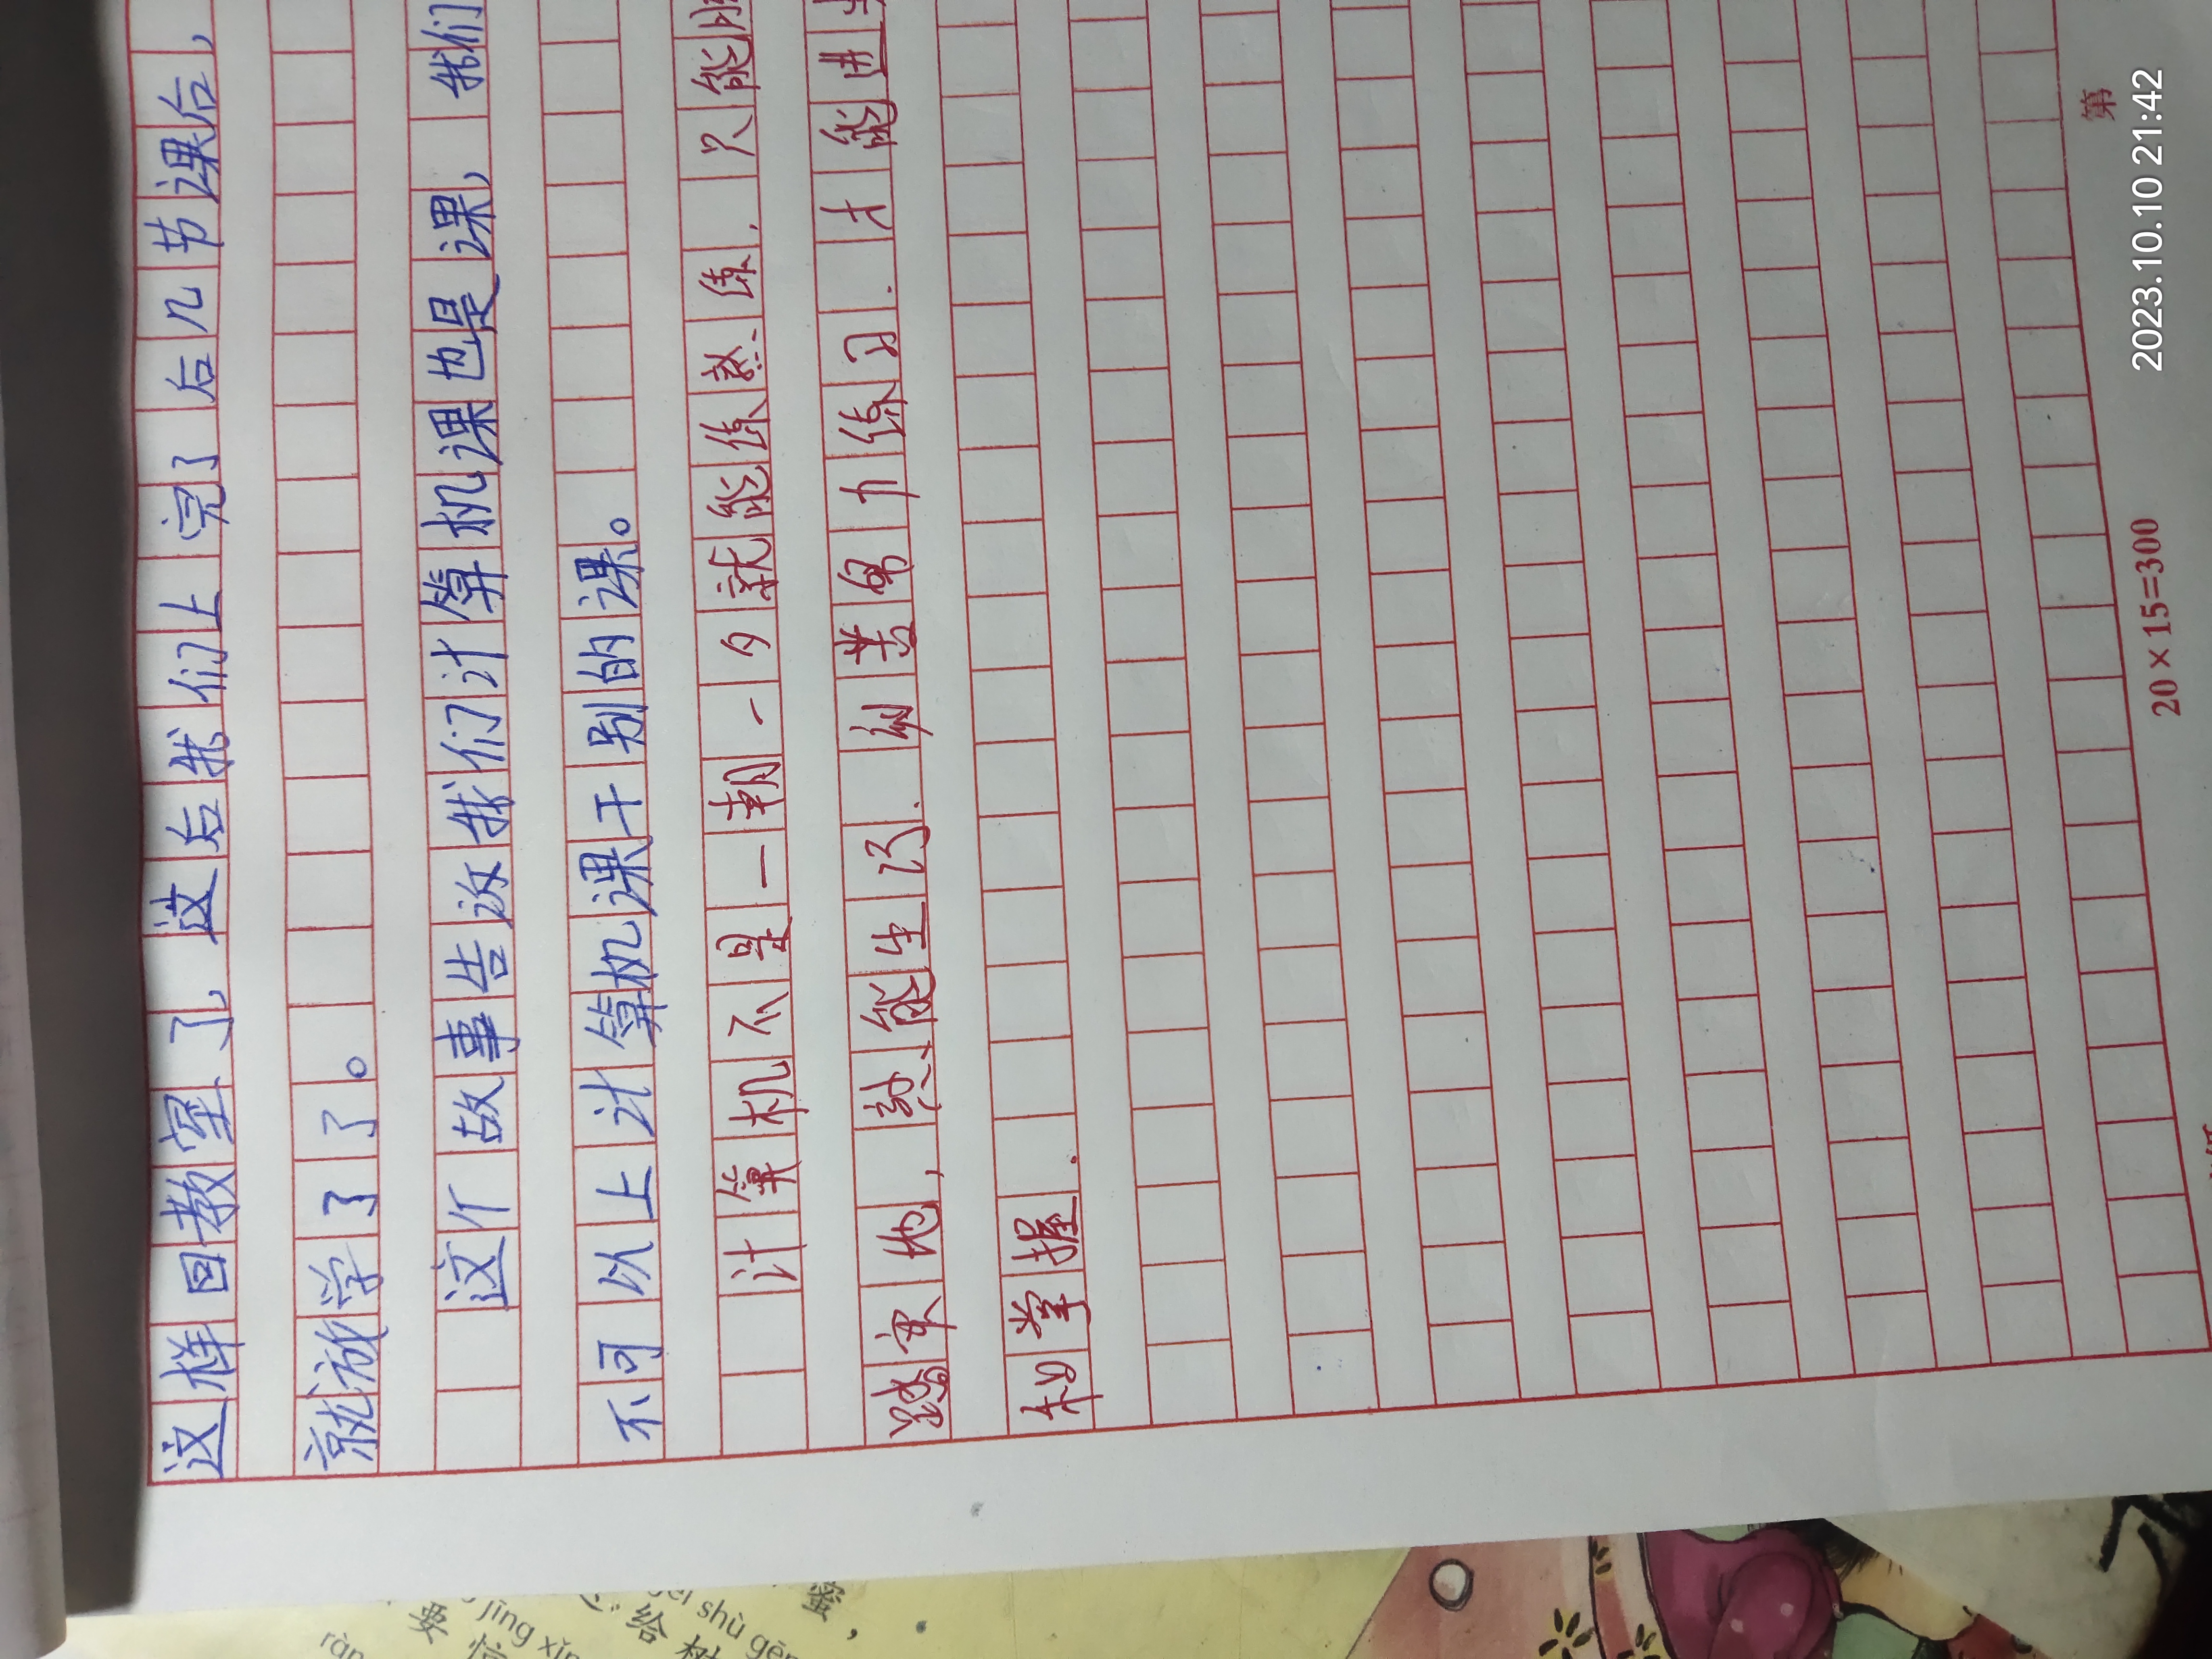 这样回教室了，这后我们上完了后几节课后，
就放学了了。
这个故事告诉我们计算机课也是课，我们
不可以上计算机课干别的课。
计算机不是一朝一夕就能练熟练.只能脚
踏实地，熟能生巧.刻苦努力练习.才能进步
和掌握.
20×15=300
第
2023.10.10 21:42
要
蜜，
给树
ràn
jīng xīn
shù gēn